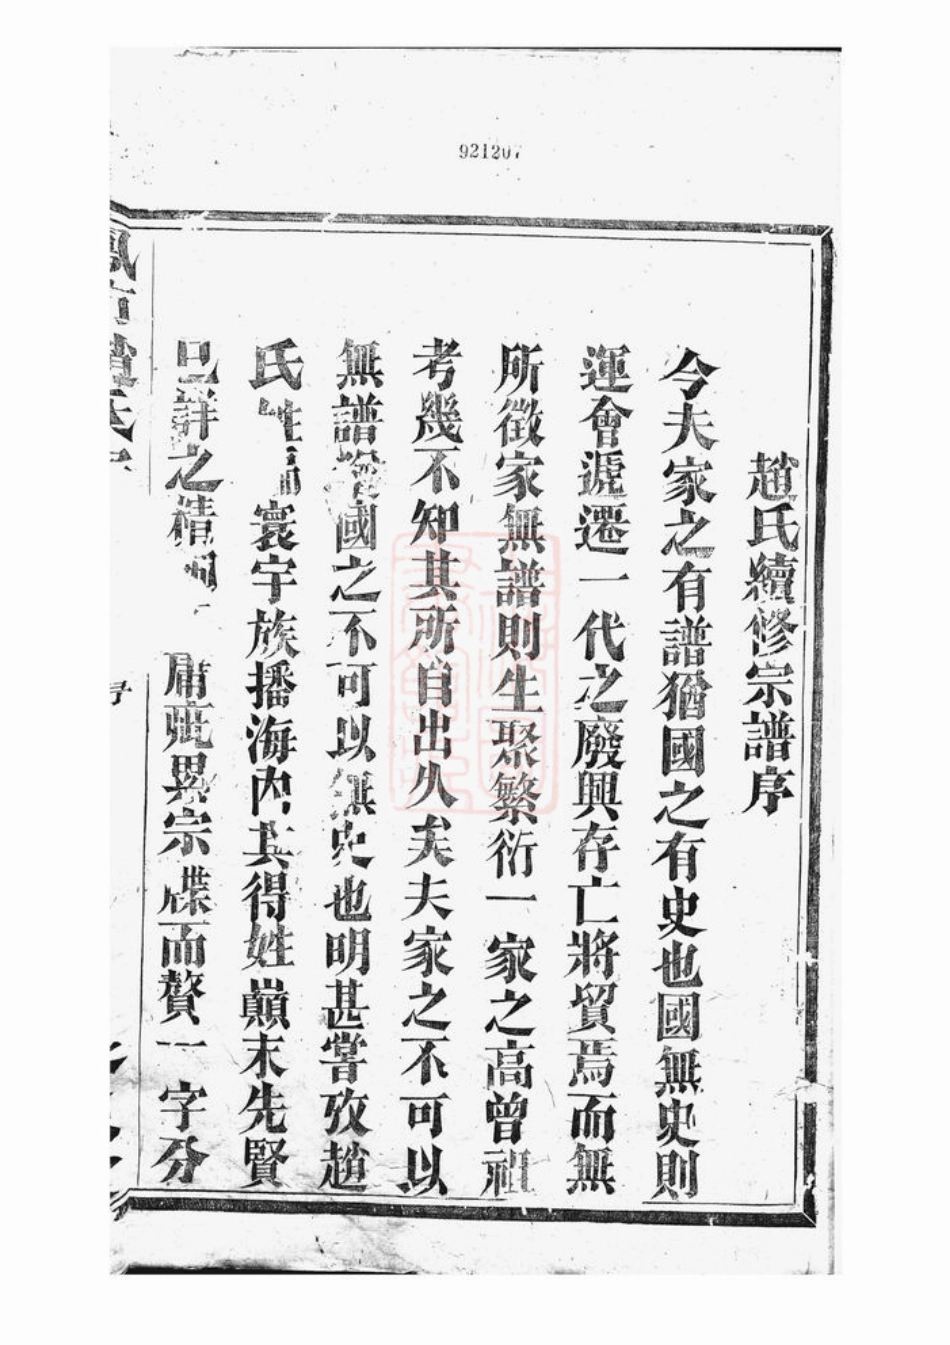 921207
趙氏續修宗譜序
今夫家之有譜猶國之有史也國無史則
運會遞遷一代之廢興存亡將貿焉而無
所徵家無譜則生聚繁衍一家之高曾祖
考幾不知其所自出久矣夫家之不可以
無譜國之不可以無史也明甚嘗攷趙
氏姓寰宇族播海內其得姓巔末先賢
已詳之精庸玼異宗牒而贅一字分
趙氏